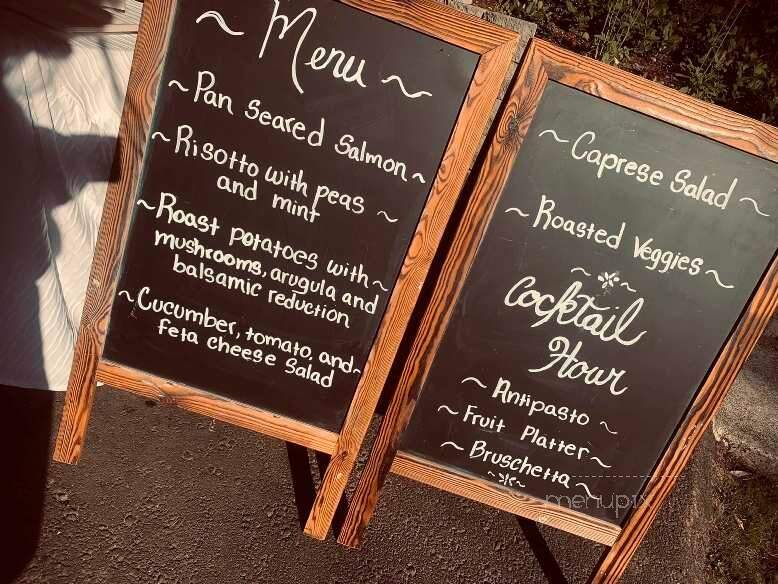 ~ Menu ~
~ Pan Seared Salmon ~
~ Risotto with peas
and mint ~
~ Roast potatoes with ~
mushrooms, arugula and
balsamic reduction
~ Cucumber, tomato, and ~
feta cheese Salad
~ Caprese Salad ~
~ Roasted Veggies ~
Cocktail
Hour
~ Antipasto ~
~ Fruit Platter ~
~ Bruschetta ~
menupix